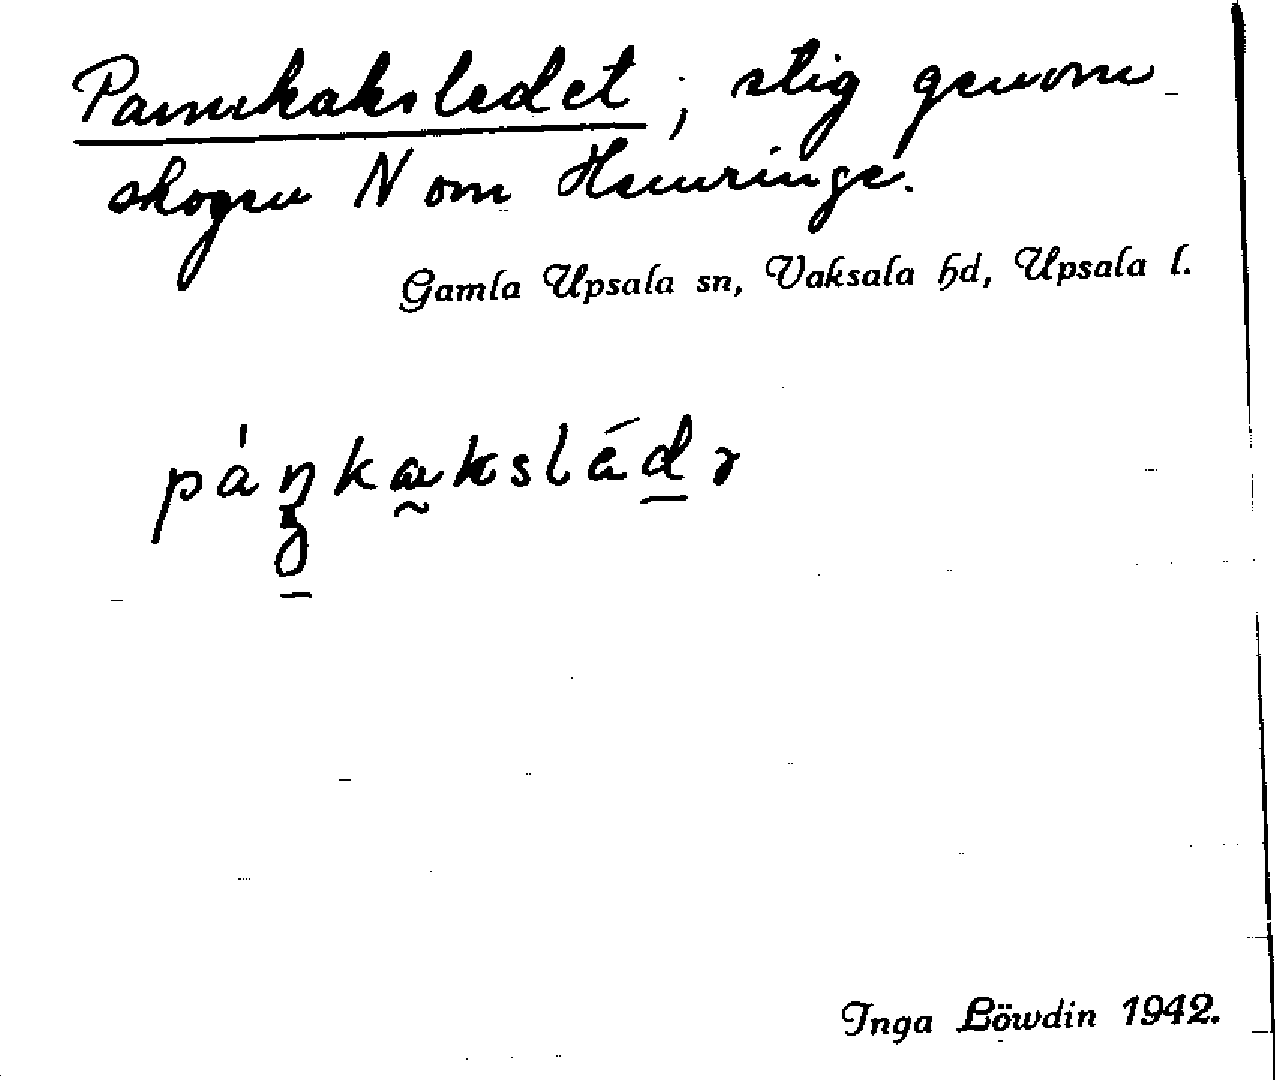 Pannkaksledet; stig genom
skogen N om Hemringe.
Gamla Upsala sn, Vaksala hd, Upsala l.
Inga Löwdin 1942.